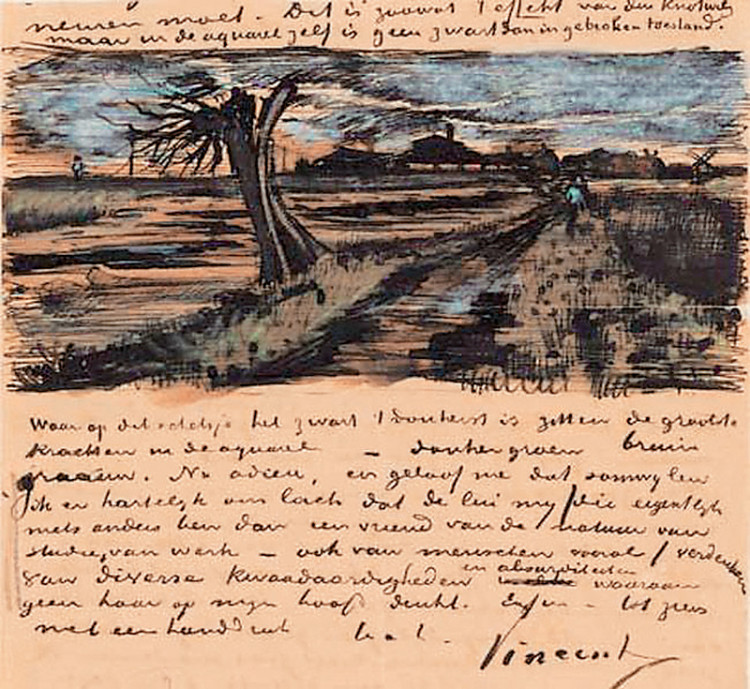 nemen moet. Dit is zoowat 't effekt van den knotwilg
maar in de aquarel zelf is geen zwart dan in gebroken toestand.
Vincent
Waar op dit schetsje het zwart 't donkerst is zitten de grootste
krachten in de aquarel – donkergroen bruin
graauw. Nu adieu, en geloof me dat somwijlen
ik er hartelijk om lach dat de lui my /die eigentlyk
niets anders ben dan een vriend van de natuur van
studie, van werk – ook van menschen vooral/ verdenken
van diverse kwaadaardigheden en absurditeiten waaraan
geen haar op myn hoofd denkt. Enfin – tot ziens
met een handdruk t. à t.
Vincent